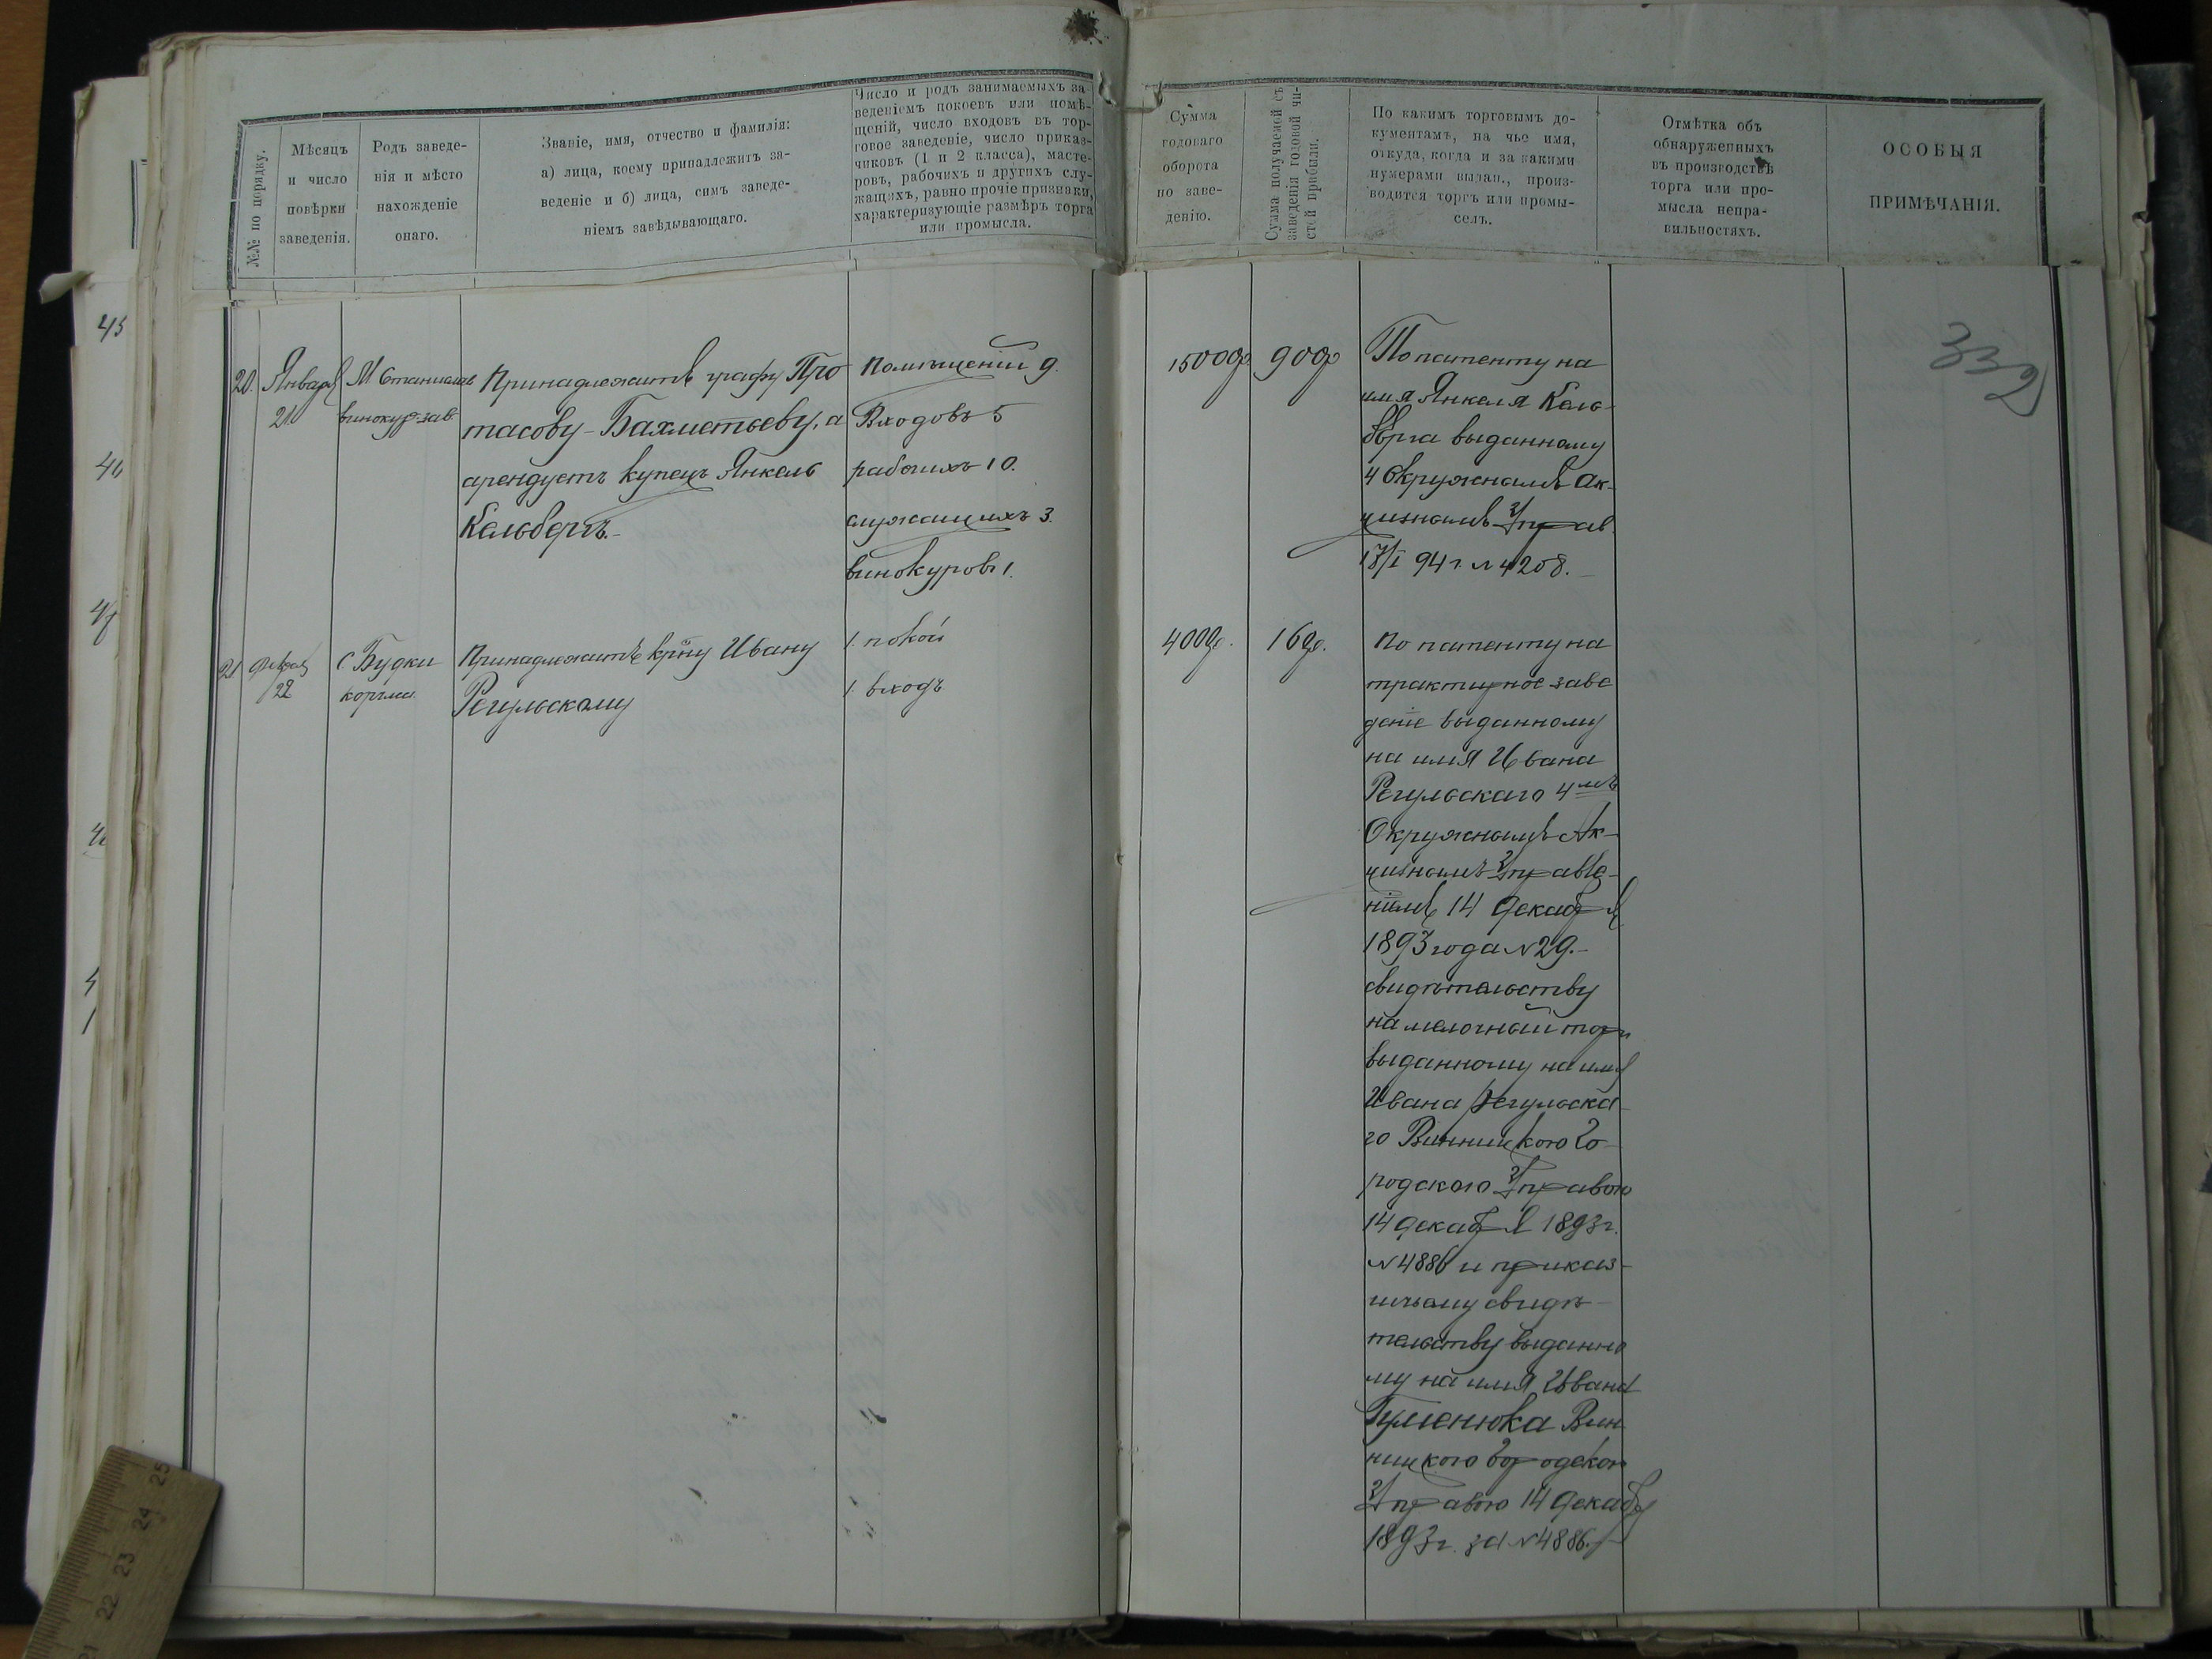 №№ по порядку.
Мѣсяцъ
и число
повѣрки
заведенія.
Родъ заведе-
нія и мѣсто
нахожденіе
онаго.
Званіе, имя, отчество и фамилія:
а) лица, коему принадлежитъ за-
веденіе и б) лица, симъ заведе-
ніемъ завѣдывающаго.
Число и родъ занимаемыхъ за-
веденіемъ покоевъ или помѣ-
щеній, число входовъ въ тор-
говое заведеніе, число приказ-
чиковъ (1 и 2 класса), масте-
ровъ, рабочихъ и другихъ слу-
жащихъ, равно прочіе признаки,
характеризующіе размѣръ торга
или промысла.
Сумма
годоваго
оборота
по заве-
денію.
Сумма получаемой съ
заведенія годовой чи-
стой прибыли.
По какимъ торговымъ до-
кументамъ, на чье имя,
откуда, когда и за какими
нумерами выдан., произ-
водится торгъ или промы-
селъ.
Отмѣтка объ
обнаруженныхъ
въ производствѣ
торга или про-
мысла непра-
вильностяхъ.
ОСОБЫЯ
ПРИМѢЧАНІЯ.
332
20.
Января
21.
М Станиславъ
винокур-зав.
Принадлежитъ графу Про
тасову-Бахметьеву, а
арендуетъ купецъ Янкель
Кельбергъ.-
Помѣщеній 9.
Входовъ 5
рабочихъ 10.
служащихъ 3.
винокуровъ 1.
15000р
900р
По патенту на
имя Янкеля Кель-
берга выданному
4 Окружнымъ Ак-
цизнымъ Управ.
17/I 94 г. № 4208.-
21
Февраля
22
с Будки
корчма.
Принадлежитъ кр-ну Ивану
Регульскому
1. покой
1. входъ
400р.
16р.
По патенту на
трактирное заве
деніе выданному
на имя Ивана
Регульскаго 4мъ
Окружнымъ Ак-
цизнымъ Управле-
ніемъ 14 Декабря
1893 года № 29.-
свидѣтельству
на мелочный торгъ
выданному на имя
Ивана Регульска-
го Винницкою Го-
родскою Управою
14 декабря 1893 г.
№ 4886 и приказ-
чичьему свидѣ-
тельству выданно
му на имя Ивана
Гуменюка Вин
ницкою Городскою
Управою 14 Декабря
1893 г. за № 4886.-
45
46
47
25
24
23
22
21